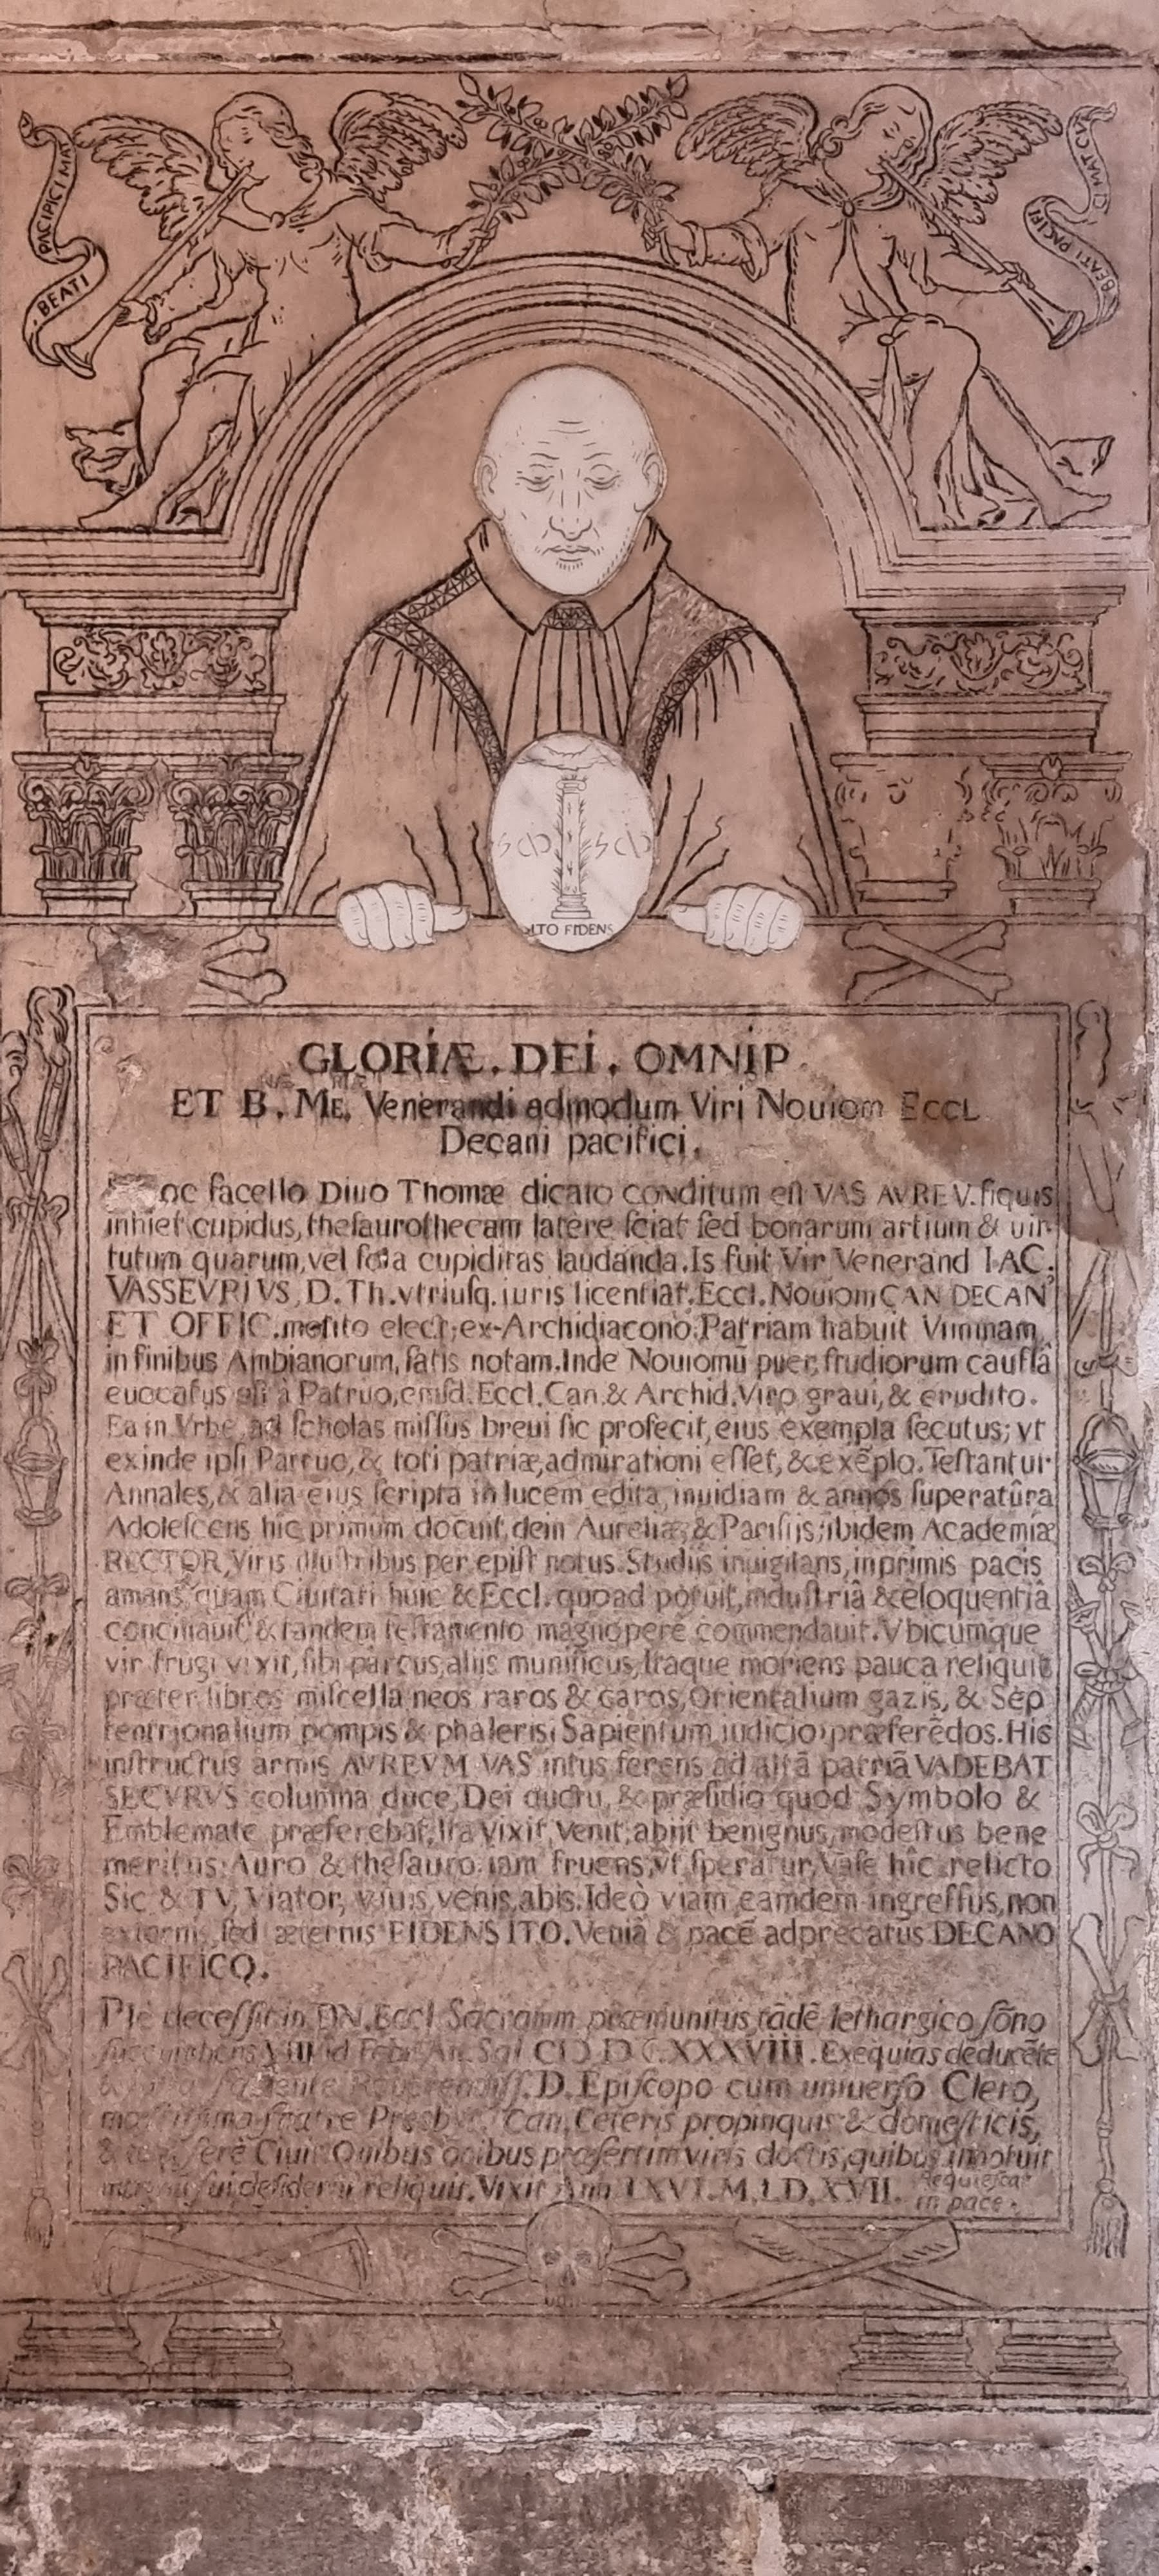 BEATI PACIFICI
BEATI PACIFI
ITO FIDENS
GLORIÆ. DEI. OMNIP.
ET B. ME. Venerandi admodum Viri Nouiom Eccl
Decani pacifici.
oc sacello Diuo Thomæ dicato conditum est VAS AVREV. siquis
inhiet cupidus, thesaurothecam latere sciat sed bonarum artium & uir-
tutum quarum, vel sola cupiditas laudanda. Is fuit Vir Venerand IAC.
VASSEVRIVS, D. Th. vtriusq. iuris licentiat. Eccl. Nouiom CAN DECAN
ET OFFIC. merito elect. ex-Archidiacono. Patriam habuit Vimnam
in finibus Ambianorum, satis notam. Inde Nouiomū puer, studiorum caussâ
euocatus est à Patruo, eiusd. Eccl. Can. & Archid. Viro graui, & erudito.
Ea in Vrbe, ad scholas missus breui sic profecit, eius exempla secutus; vt
exinde ipsi Patruo, & toti patriæ, admirationi esset, & exēplo. Testantur
Annales, & alia eius scripta in lucem edita, inuidiam & annos superatūra
Adolescens hic primum docuit, dein Aureliæ, & Parisijs; ibidem Academiæ
RECTOR, Viris illustribus per epist notus. Studiis inuigilans, inprimis pacis
amans, quam Ciuitati huic & Eccl. quoad potuit, industriâ & eloquentiâ
conciliauit & tandem testamento magnopere commendauit. Vbicumque
vir frugi vixit, sibi parcus, aliis munificus, Itaque moriens pauca reliquit
præter libros miscellaneos raros & caros, Orientalium gazis, & Sep
tentrionalium pompis & phaleris, Sapientum iudicio, præferēdos. His
instructus armis AVREVM VAS intus ferens ad altā patriā VADEBAT
SECVRVS columna duce, Dei ductu, & præsidio quod Symbolo &
Emblemate præferebat, Ita vixit, venit, abiit benignus, modestus bene
meritus. Auro & thesauro iam fruens, vt speratur, Vase hîc relicto
Sic & TV, Viator, viuis, venis, abis. Ideò viam eamdem ingressus, non
externis, sed æternis FIDENS ITO. Veniā & pacē adprecatus DECANO
PACIFICO.
PIe decessit in DN. Eccl Sacramm præmunitus, tādē lethargico sōno
succumbens VIII id Febr. An. Sal CIƆ IƆ C. XXXVIII. Exequias deducēte
& D. Episcopo cum uniuerso Clero,
mœstissimo fratre Presbyt. Can. Ceteris propinquis & domesticis,
& ferè Ciuit. Omibus præsertim viris doctis, quibus innotuit
sui desiderium reliquit. Vixit Ann LXVI. M. I. D. XVII. Requiescat
in pace.